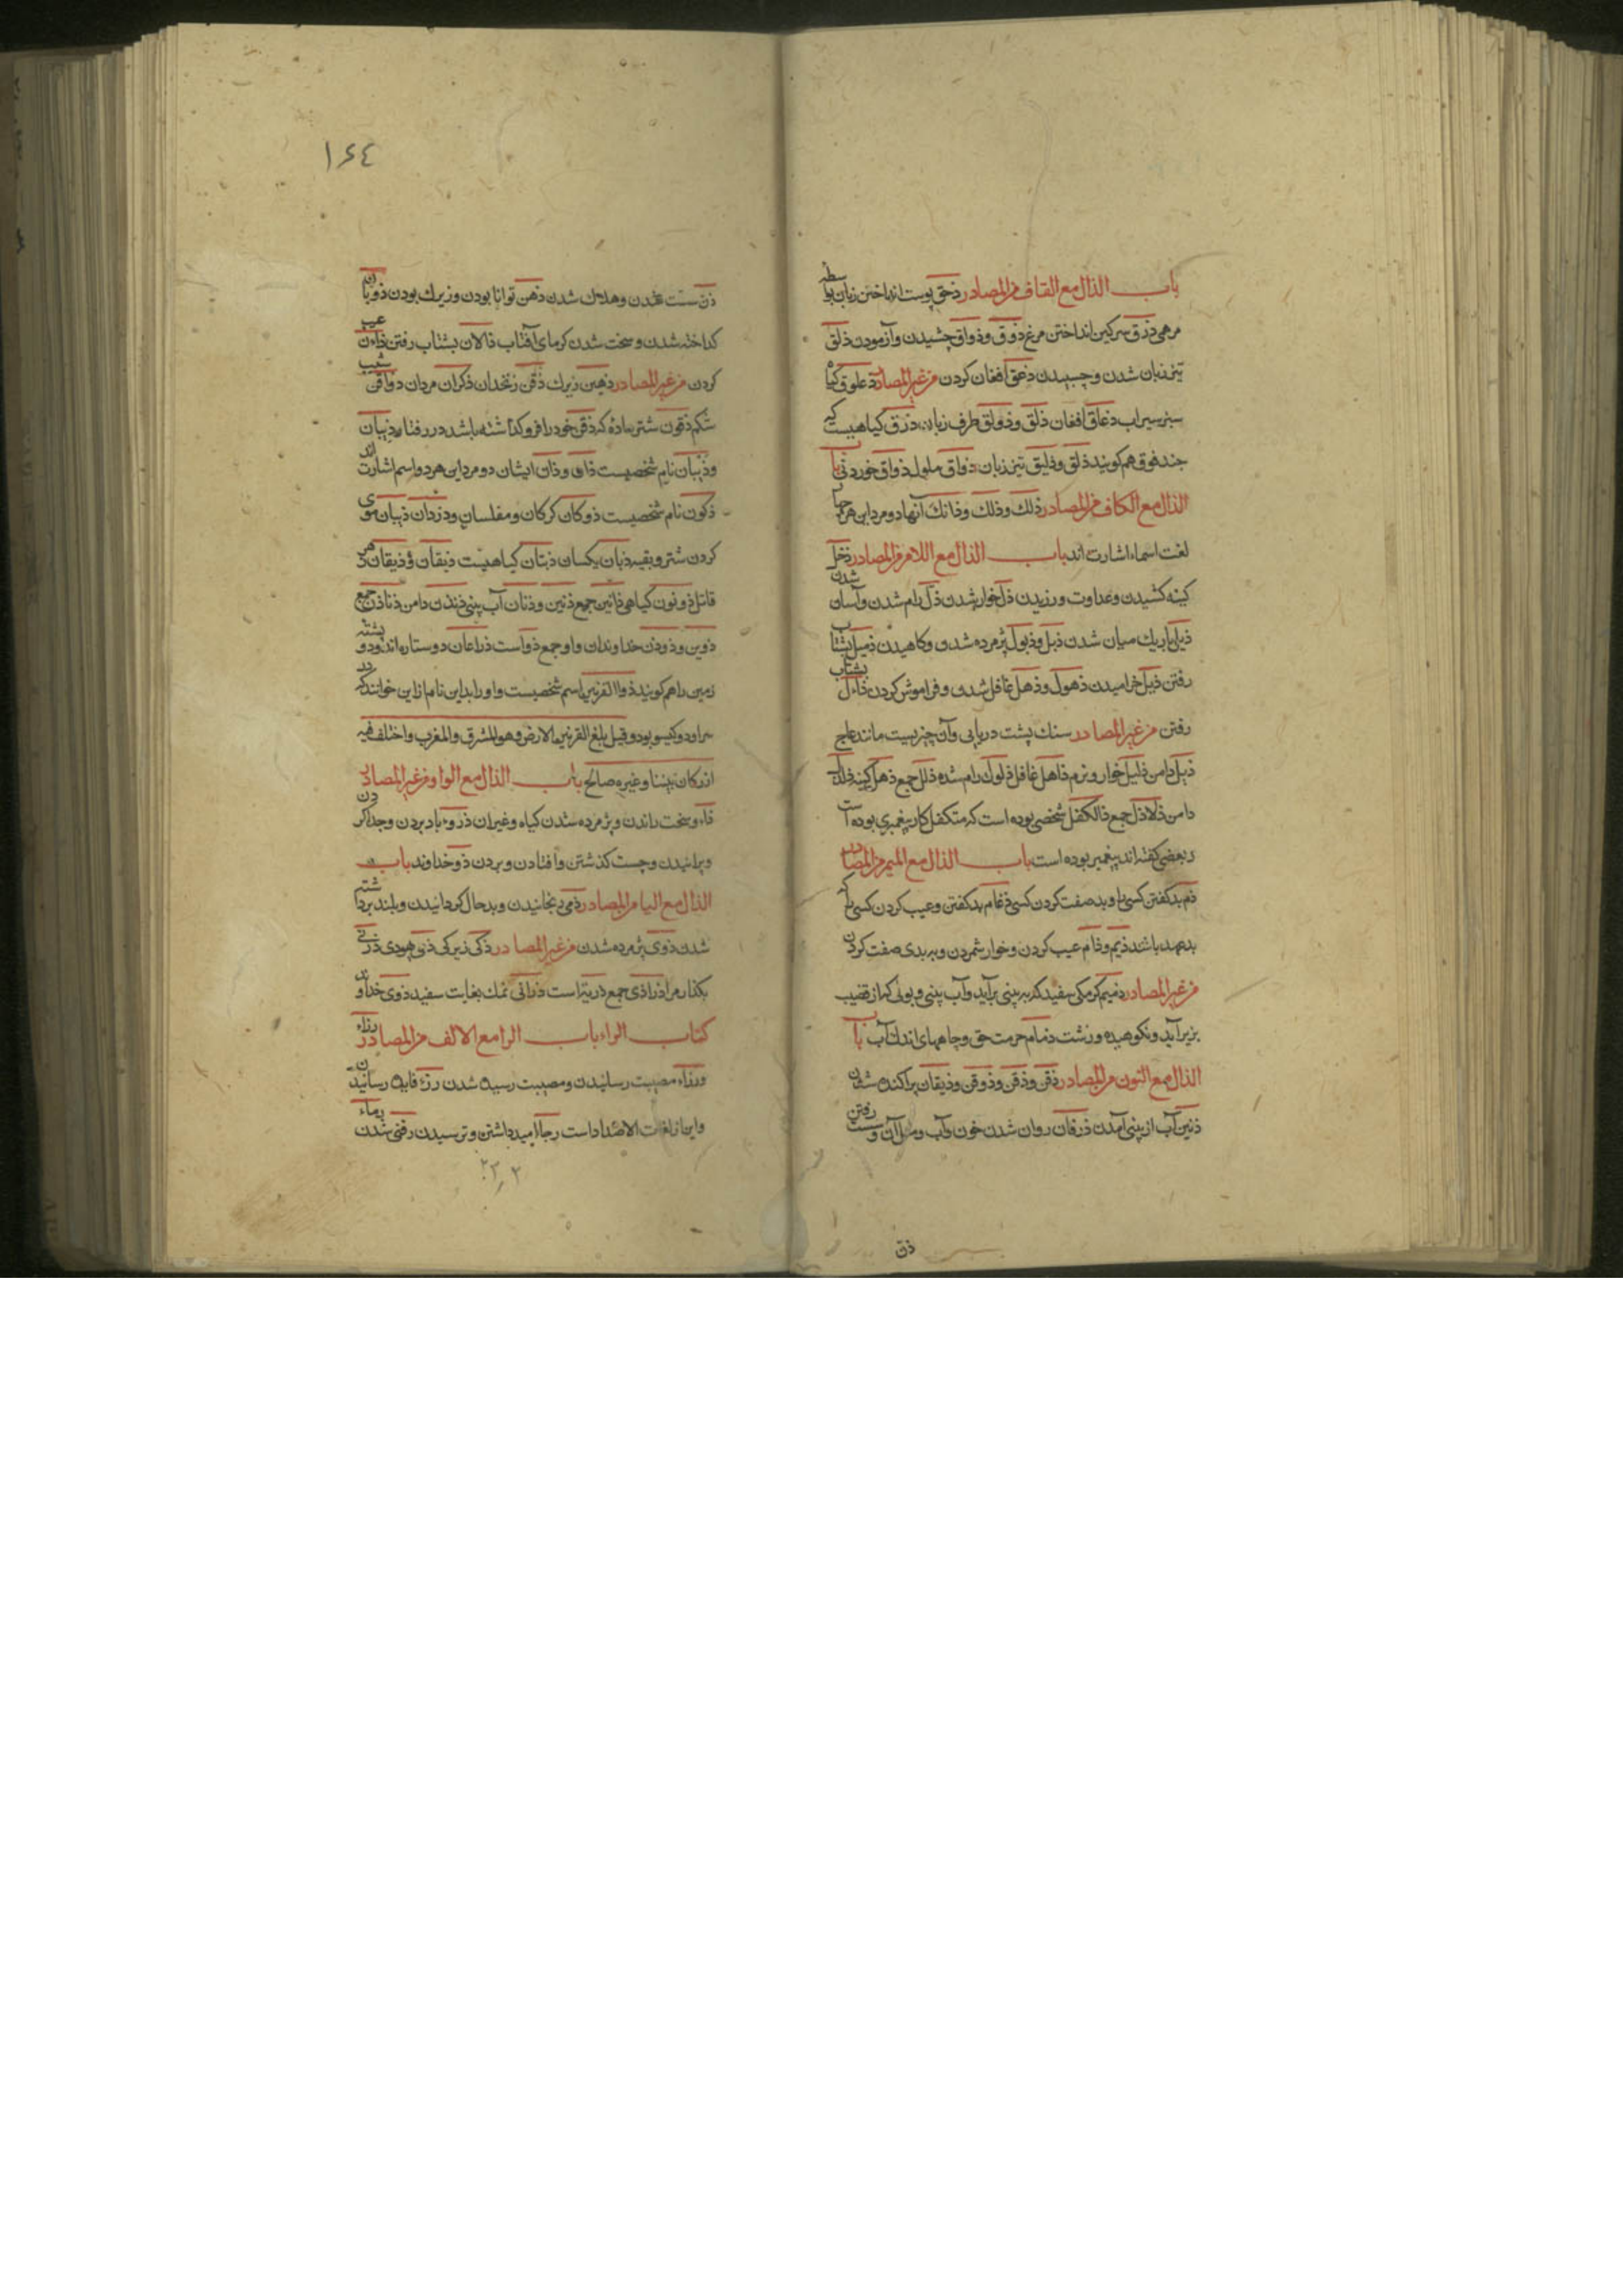 باب الذال مع القاف من المصادر ذحق پوست انداختن زبان بواسطه
مرضی ذرق سرکین انداختن مرغ ذوق وذواق چشیدن وآزمودن ذلق
تیز زبان شدن و چسپیدن ذعق افغان کردن من غیر المصادر ذعلوق کیاه
سبز سیراب ذعاق افغان ذلق وذولق طرف زبان ذرق کیاهیست که
جندقوق هم کویند ذلق وذلیق تیز زبان ذواق ملول ذواق خوردنی باب
الذال مع الکاف من المصادر ذلك وذلك وذانك آنها دو مرد این هر چهار
لغت اسماء اشارت اند باب الذال مع اللام من المصادر ذحل
کینه کشیدن وعداوت ورزیدن ذل خوار شدن ذل رام شدن وآسان شدن
ذبل باریك میان شدن ذبل وذبول پژمرده شدن وکاهیدن ذمیل بشتاب
رفتن ذیل خرامیدن ذهول وذهل غافل شدن و فراموش کردن ذالان بشتاب
رفتن من غیر المصادر سنك پشت دریایی وآن چیزیست مانند عاج
ذیل دامن ذلیل خوار ونرم ذاهل غافل ذلول رام شده ذلل جمع ذحل کینه
دامن ذلاذل جمع ذالکفل شخصی بوده است که متکفل کار پیغمبری بوده است
وبعضی کفته اند پیغمبر بوده است باب الذال مع المیم من المصادر
ذم بد کفتن کسی را وبد صفت کردن کسی ذام بد کفتن وعیب کردن کسی را که
بد باشد ذیم وذام عیب کردن وخوار شمردن وببدی صفت کردن
من غیر المصادر ذمیم کرمکی سفید که بر بینی برآید وآب بینی وبولی که از قضیب
بزیر آید ونکوهیده وزشت ذمام حرمت حق وچاههای اندك آب باب
الذال مع النون من المصادر ذقن وذقن وذوقن وذیقان پراکنده شدن
ذنین آب از بینی آمدن ذرفان روان شدن خون وآب ومثل آن وسست رفتن
ذن
۱۶٤
ذن سست شدن وهلاك شدن ذهن توانا بودن وزیرك بودن ذوبان
کداخته شدن وسخت شدن کرمای آفتاب ذالان بشتاب رفتن ذان عیب
کردن من غیر المصادر ذهین زیرك ذقن زنخدان ذکران مردان ذواقن شیب
شکم ذقون شتر ماده که ذقن خود را فرو کذاشته باشد در رفتار ذیبان
وذبیان نام شخصیست ذان وذان ایشان دو مرد این هر دو اسم اشارت اند
ذکون نام شخصیست ذوبان کرکان ومفلسان ودزدان ذیبان موی
کردن شتر وبقیه ذبان یکسان ذبتان کیاهیست ذیقان وذیقان زهر
قاتل ذونون کیاهی ذانین جمع ذنین وذنان آب بینی ذنذن دامن ذناذن جمع
ذوین وذوون خداوندان واو جمع ذو است ذراعان دو ستاره اند ودو پشته
زمین را هم کویند ذوالقرنین اسم شخصیست واو را بداین نام از این خوانند که در
سر او دو کیسو بود وقیل بلغ القرنین الارض وهو المشرق والمغرب واختلف فیه
از ارکان نبینا وغیره صالح باب الذال مع الواو من غیر المصادر
ذآو سخت راندن وپژمرده شدن کیاه وغیران ذرو باد بردن وجدا کردن
وپرانیدن وچست کذشتن وافتادن وبردن ذو خداوند باب
الذال مع الیا من المصادر ذمی رنجانیدن وبدحال کردانیدن وبلند برداشته
شدن ذوی پژمرده شدن من غیر المصادر ذکی زیرکی ذمی جهودی ذرنی
بکذار مرا ذراری جمع ذریتراست ذرآنی نمك بغایت سفید ذوی خداوند
کتاب الراء باب الرا مع الالف من المصادر رزاء
ورزاء مصیبت رسانیدن ومصیبت رسیده شدن رزء فایده رسانیدن
واین از لغات الاضداد است رجاا امید داشتن وترسیدن رفتنی شدن رماء